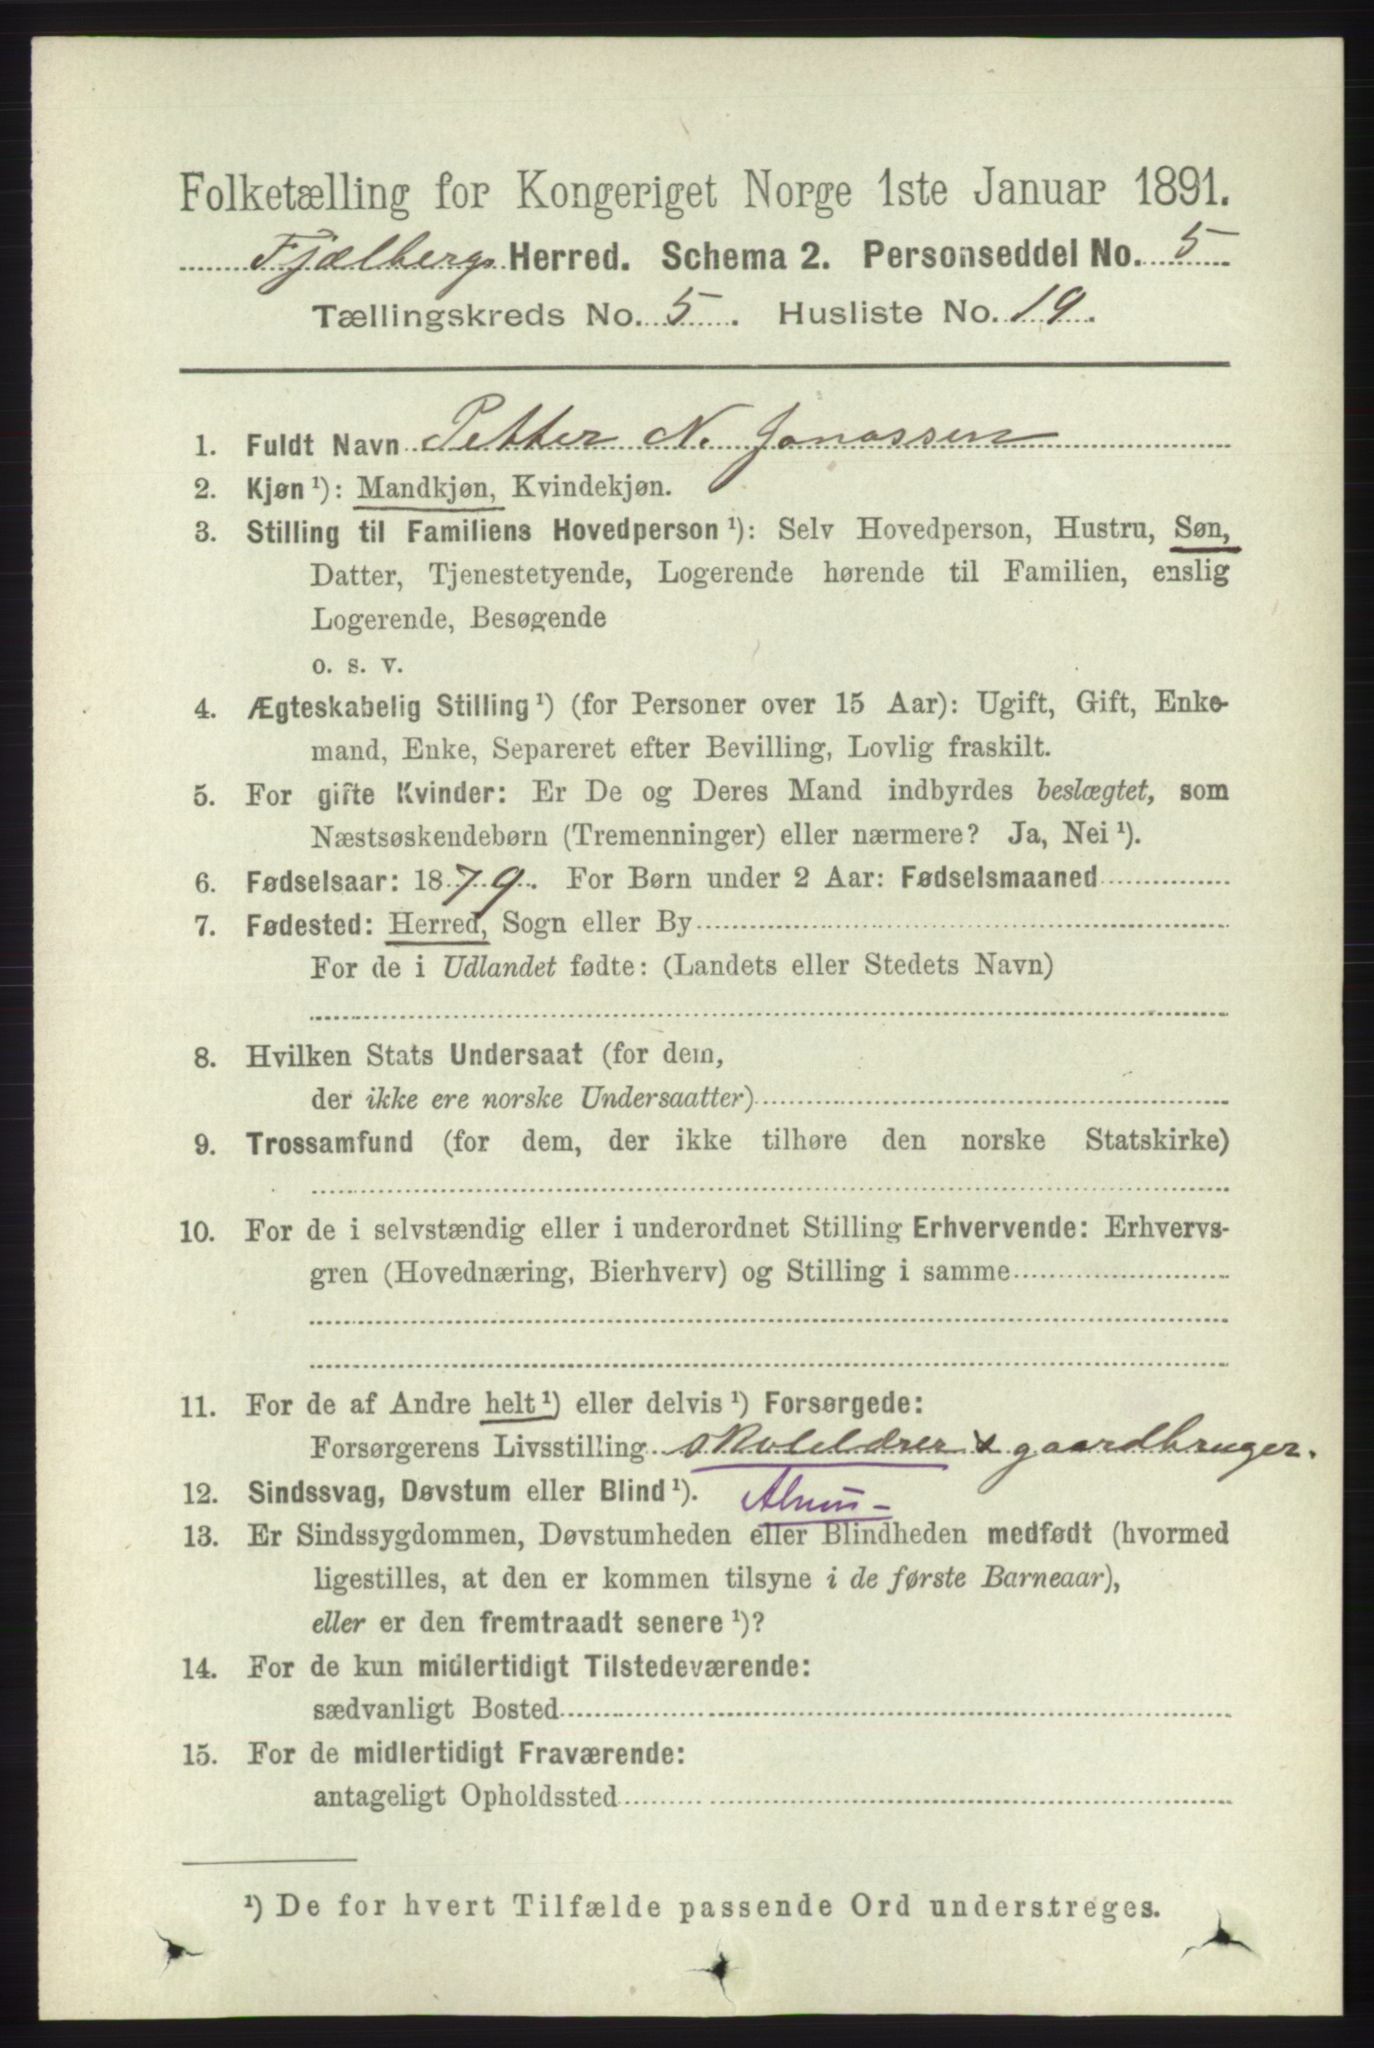 Folketælling for Kongeriget Norge 1ste Januar 1891.
Fjælbergs Herred. Schema 2. Personseddel No. 5
Tællingskreds No. 5. Husliste No. 19.
1. Fuldt Navn Petter N. Jonassen
2. Kjøn ¹): Mandkjøn, Kvindekjøn.
3. Stilling til Familiens Hovedperson ¹): Selv Hovedperson, Hustru, Søn,
Datter, Tjenestetyende, Logerende hørende til Familien, enslig
Logerende, Besøgende
o. s. v.
4. Ægteskabelig Stilling ¹) (for Personer over 15 Aar): Ugift, Gift, Enke-
mand, Enke, Separeret efter Bevilling, Lovlig fraskilt.
5. For gifte Kvinder: Er De og Deres Mand indbyrdes beslægtet, som
Næstsøskendebørn (Tremenninger) eller nærmere? Ja, Nei ¹).
6. Fødselsaar: 1879. For Børn under 2 Aar: Fødselsmaaned
7. Fødested: Herred, Sogn eller By
For de i Udlandet fødte: (Landets eller Stedets Navn)
8. Hvilken Stats Undersaat (for dem,
der ikke ere norske Undersaatter)
9. Trossamfund (for dem, der ikke tilhøre den norske Statskirke)
10. For de i selvstændig eller i underordnet Stilling Erhvervende: Erhvervs-
gren (Hovednæring, Bierhverv) og Stilling i samme
11. For de af Andre helt ¹) eller delvis ¹) Forsørgede:
Forsørgerens Livsstilling skolelærer & gaardbruger.
12. Sindssvag, Døvstum eller Blind ¹).
13. Er Sindssygdommen, Døvstumheden eller Blindheden medfødt (hvormed
ligestilles, at den er kommen tilsyne i de første Barneaar),
eller er den fremtraadt senere ¹)?
14. For de kun midlertidigt Tilstedeværende:
sædvanligt Bosted
15. For de midlertidigt Fraværende:
antageligt Opholdssted
¹) De for hvert Tilfælde passende Ord understreges.